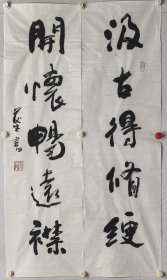 汲古得脩綆
開懷暢遠襟
書